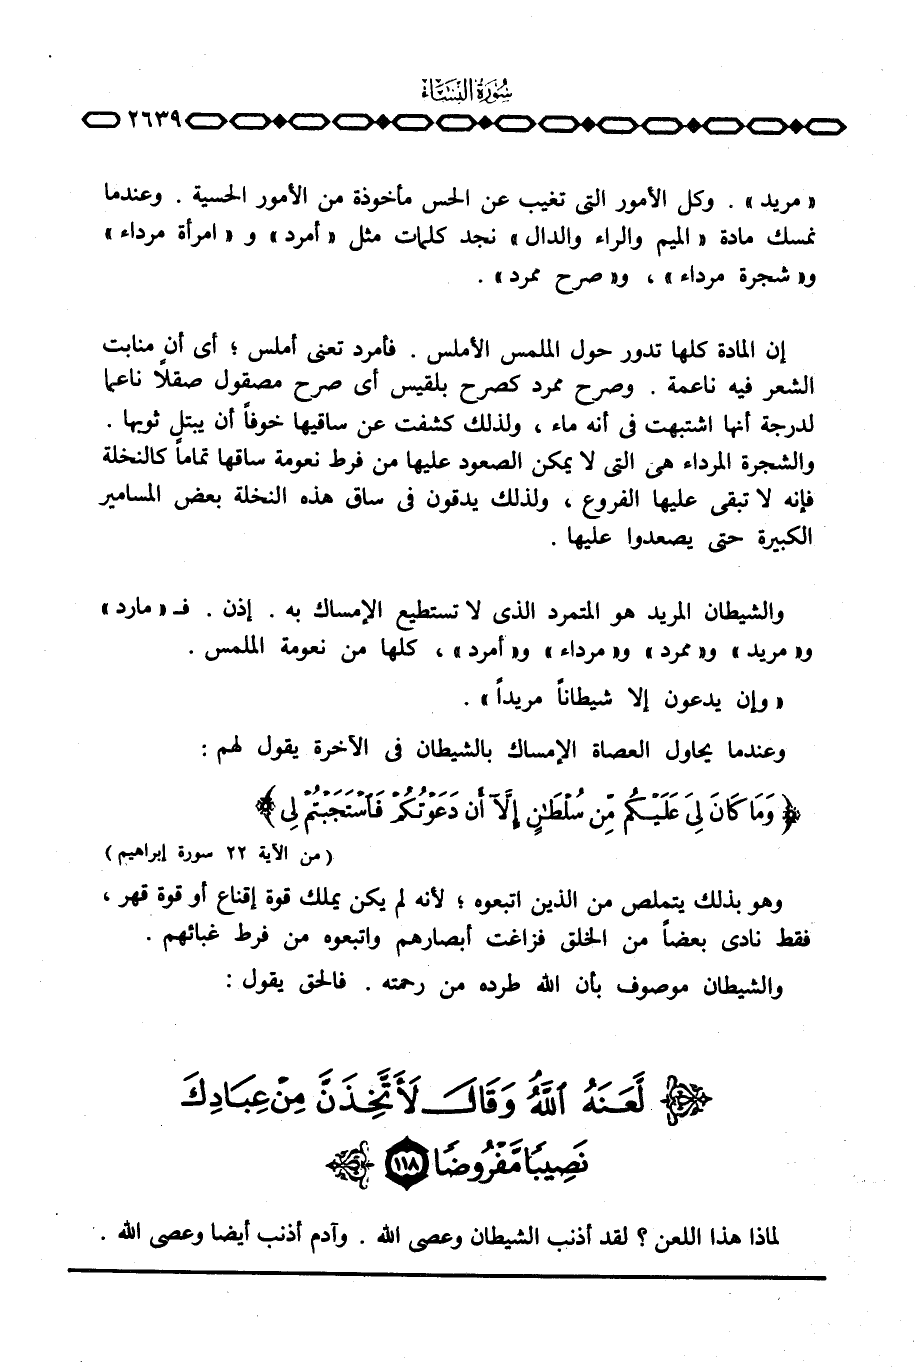 سُورَةُ النِّسَاء
٢٦٣٩
« مريد » . وكل الأمور التى تغيب عن الحس مأخوذة من الأمور الحسية . وعندما
نمسك مادة « الميم والراء والدال » نجد كلمات مثل « أمرد » و « امرأة مرداء »
و« شجرة مرداء » ، و« صرح ممرد » .
إن المادة كلها تدور حول الملمس الأملس . فأمرد تعنى أملس ؛ أى أن منابت
الشعر فيه ناعمة . وصرح ممرد كصرح بلقيس أى صرح مصقول صقلاً ناعما
لدرجة أنها اشتبهت فى أنه ماء ، ولذلك كشفت عن ساقيها خوفاً أن يبتل ثوبها .
والشجرة المرداء هى التى لا يمكن الصعود عليها من فرط نعومة ساقها تماماً كالنخلة
فإنه لا تبقى عليها الفروع ، ولذلك يدقون فى ساق هذه النخلة بعض المسامير
الكبيرة حتى يصعدوا عليها .
والشيطان المريد هو المتمرد الذى لا تستطيع الإمساك به . إذن . فـ « مارد »
و« مريد » و« ممرد » و« مرداء » و« أمرد » ، كلها من نعومة الملمس .
« وإن يدعون إلا شيطاناً مريداً » .
وعندما يحاول العصاة الإمساك بالشيطان فى الآخرة يقول لهم :
﴿ وَمَا كَانَ لِىَ عَلَيْكُم مِّن سُلْطَٰنٍ إِلَّآ أَن دَعَوْتُكُمْ فَٱسْتَجَبْتُمْ لِى ﴾
( من الآية ٢٢ سورة إبراهيم )
وهو بذلك يتملص من الذين اتبعوه ؛ لأنه لم يكن يملك قوة إقناع أو قوة قهر ،
فقط نادى بعضاً من الخلق فزاغت أبصارهم واتبعوه من فرط غبائهم .
والشيطان موصوف بأن الله طرده من رحمته . فالحق يقول :
﴿ لَّعَنَهُ ٱللَّهُ وَقَالَ لَأَتَّخِذَنَّ مِنْ عِبَادِكَ
نَصِيبًا مَّفْرُوضًا ١١٨ ﴾
لماذا هذا اللعن ؟ لقد أذنب الشيطان وعصى الله . وآدم أذنب أيضا وعصى الله .